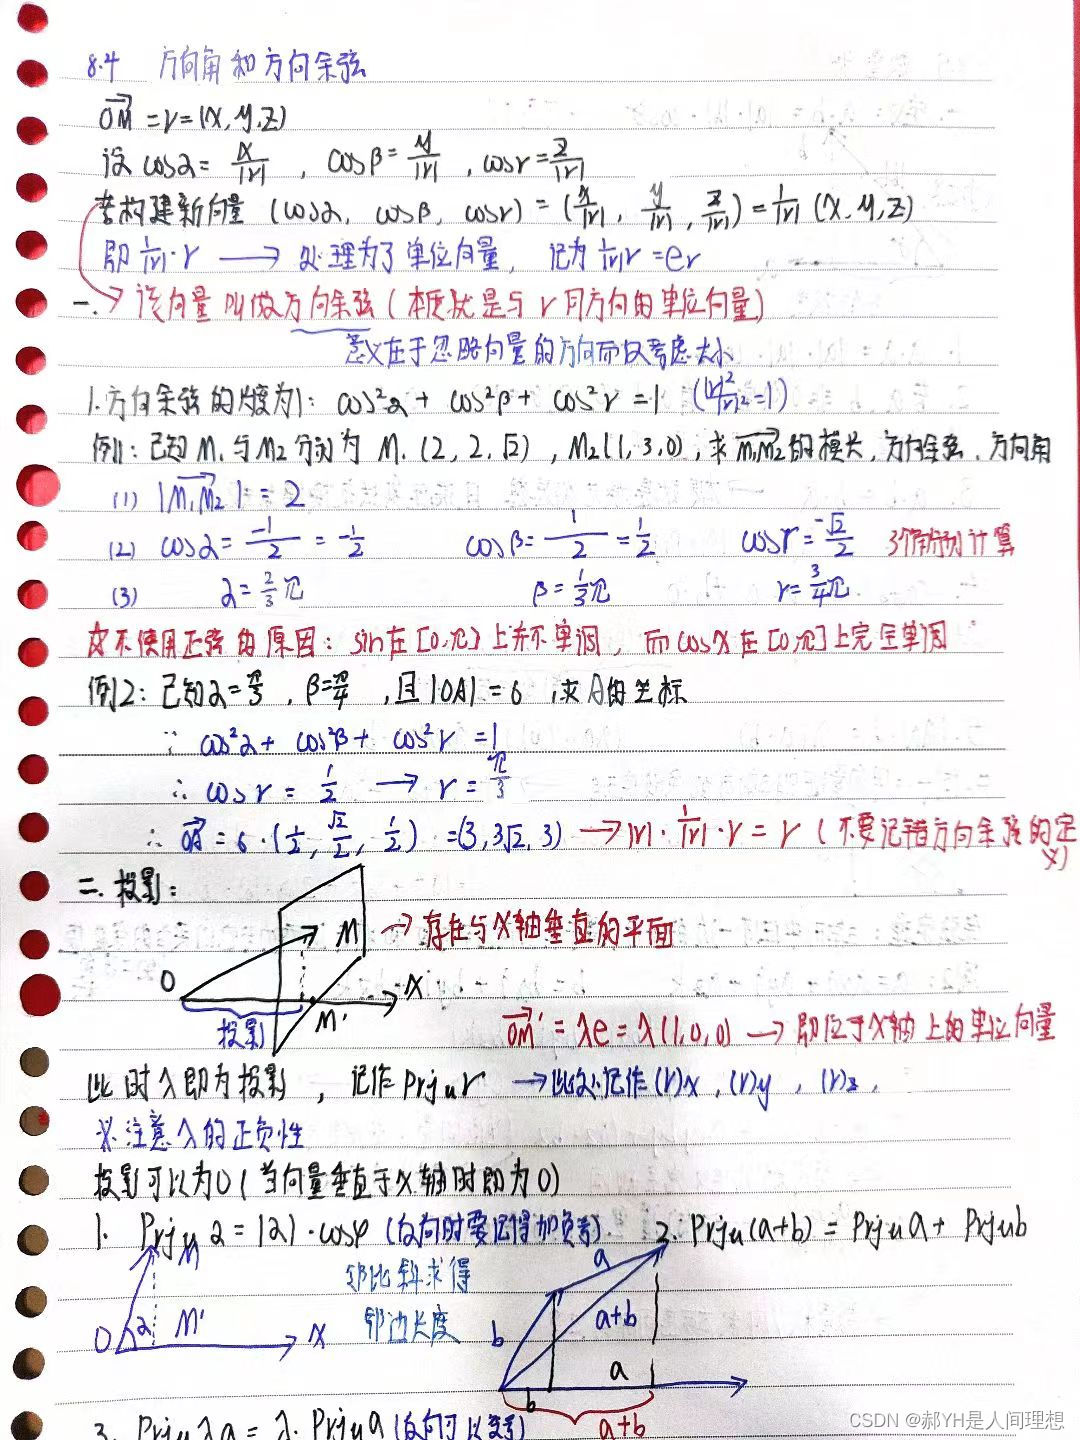 8.4 方向角和方向余弦
OM = r = (x, y, z)
设 cosα = x/|r| , cosβ = y/|r| , cosγ = z/|r|
若构建新向量 (cosα, cosβ, cosγ) = (x/|r|, y/|r|, z/|r|) = 1/|r| (x, y, z)
即 1/|r| · r → 处理为了单位向量, 记为 1/|r| r = er
一. → 该向量叫做方向余弦 (本质就是与 r 同方向的单位向量)
意义在于忽略向量的方向而仅考虑大小
1. 方向余弦的长度为1: cos²α + cos²β + cos²γ = 1 (|r|²/|r|² = 1)
例1: 已知 M1 与 M2 分别为 M1 (2, 2, √2) , M2 (1, 3, 0) , 求 M1M2 的模长, 方向余弦, 方向角
(1) |M1M2| = 2
(2) cosα = -1/2 = -1/2 cosβ = 1/2 = 1/2 cosγ = -√2/2 3个角分别计算
(3) α = 2/3 π β = 1/3 π γ = 3/4 π
☆不使用正弦的原因: sin在[0,π]上并不单调, 而cosx在[0,π]上完全单调
例2: 已知 α = π/3 , β = π/4 , 且 |OA| = 6 , 求A的坐标
∵ cos²α + cos²β + cos²γ = 1
∴ cosγ = 1/2 → γ = π/3
∴ OA = 6 · (1/2, √2/2, 1/2) = (3, 3√2, 3) → |r| · 1/|r| · r = r (不要记错方向余弦的定义)
二. 投影:
M → 存在与x轴垂直的平面
O x
投影 M'
OM' = λe = λ(1,0,0) → 即位于x轴上的单位向量
此时λ即为投影, 记作 Prju r → 此处记作 (r)x , (r)y , (r)z ,
※注意λ的正负性
投影可以为0 (当向量垂直于x轴时即为0)
1. Prju a = |a| · cosφ (反向时要记得加负号). 2. Prju (a+b) = Prju a + Prju b
M
邻比斜求得
邻边长度
O α M' x
a
b a+b
a
b
a+b
3. Prju λa = λ · Prju a (反向可以变号)
CSDN @郝YH是人间理想